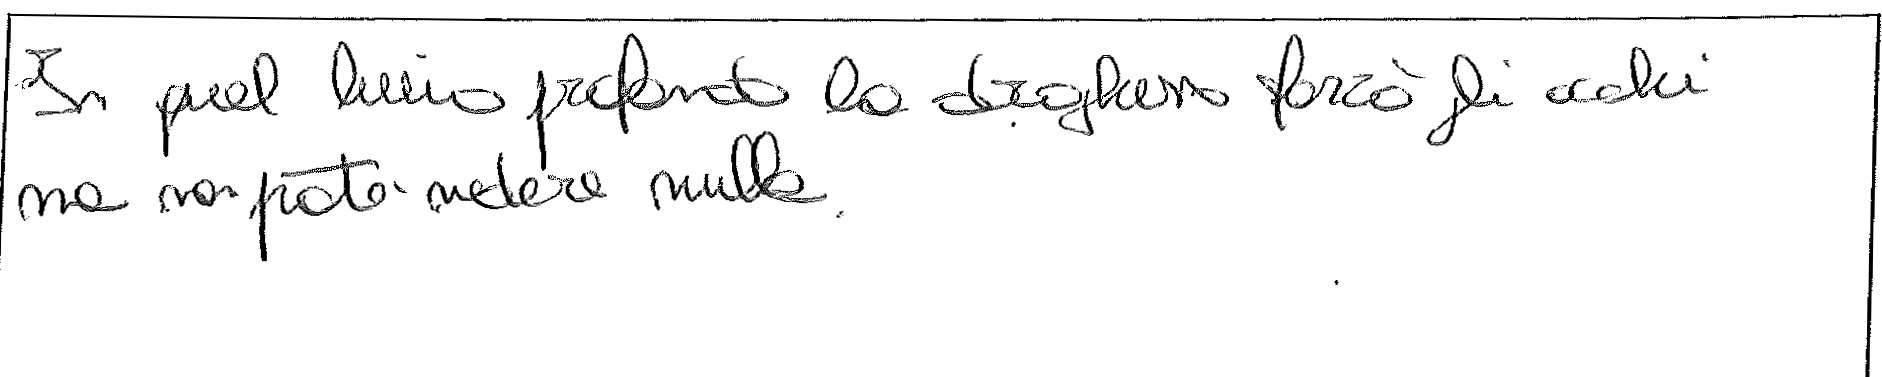 In quel buio profondo lo droghiere forzò gli occhi
ma non poté vedere nulla.